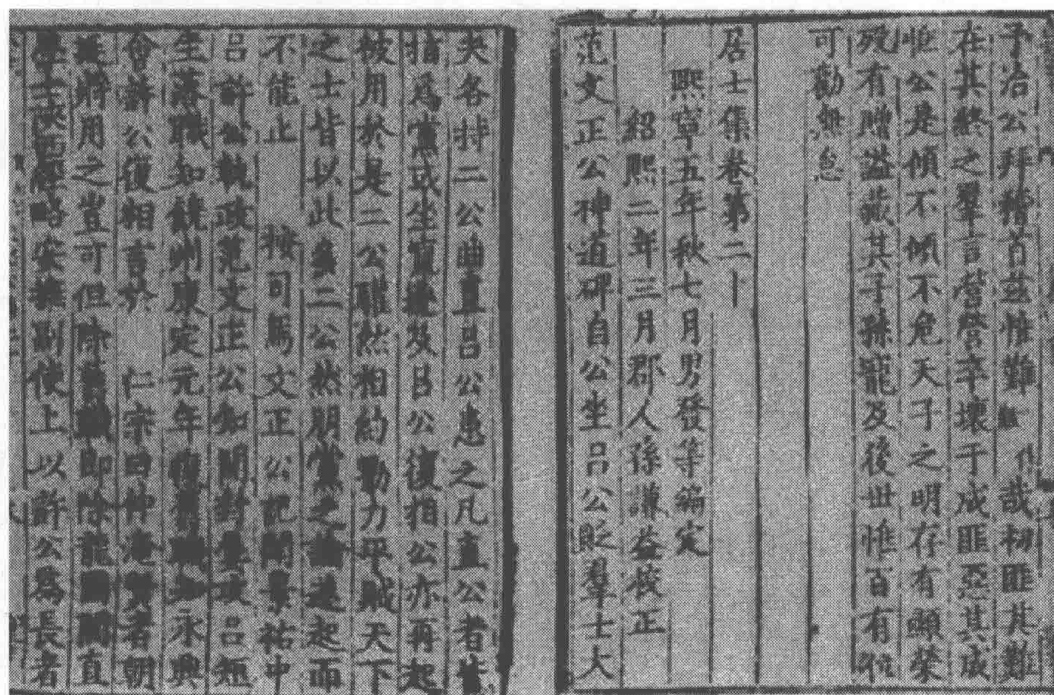 予治公拜稽首茲惟難哉初匪其難
在其終之羣言營營卒壞于成匪惡其成
惟公是傾不傾不危天子之明存有顯榮
歿有贈謚藏其子孫寵及後世惟百有位
可勸無怠
居士集卷第二十
熙寧五年秋七月男發等編定
紹熙二年三月郡人孫謙益校正
范文正公神道碑自公坐呂公貶羣士大
夫各持二公曲直呂公患之凡直公者皆
指爲黨或坐竄逐及呂公復相公亦再起
被用於是二公驩然相約勠力平賊天下
之士皆以此多二公然朋黨之論遂起而
不能止　按司馬文正公記聞景祐中
呂許公執政范文正公知開封屢攻呂短
坐落職知饒州康定元年復舊職知永興
會許公復相言於　仁宗曰仲淹賢者朝
廷將用之豈可但除舊職即除龍圖閣直
學士陝西經略安撫副使上以許公爲長者